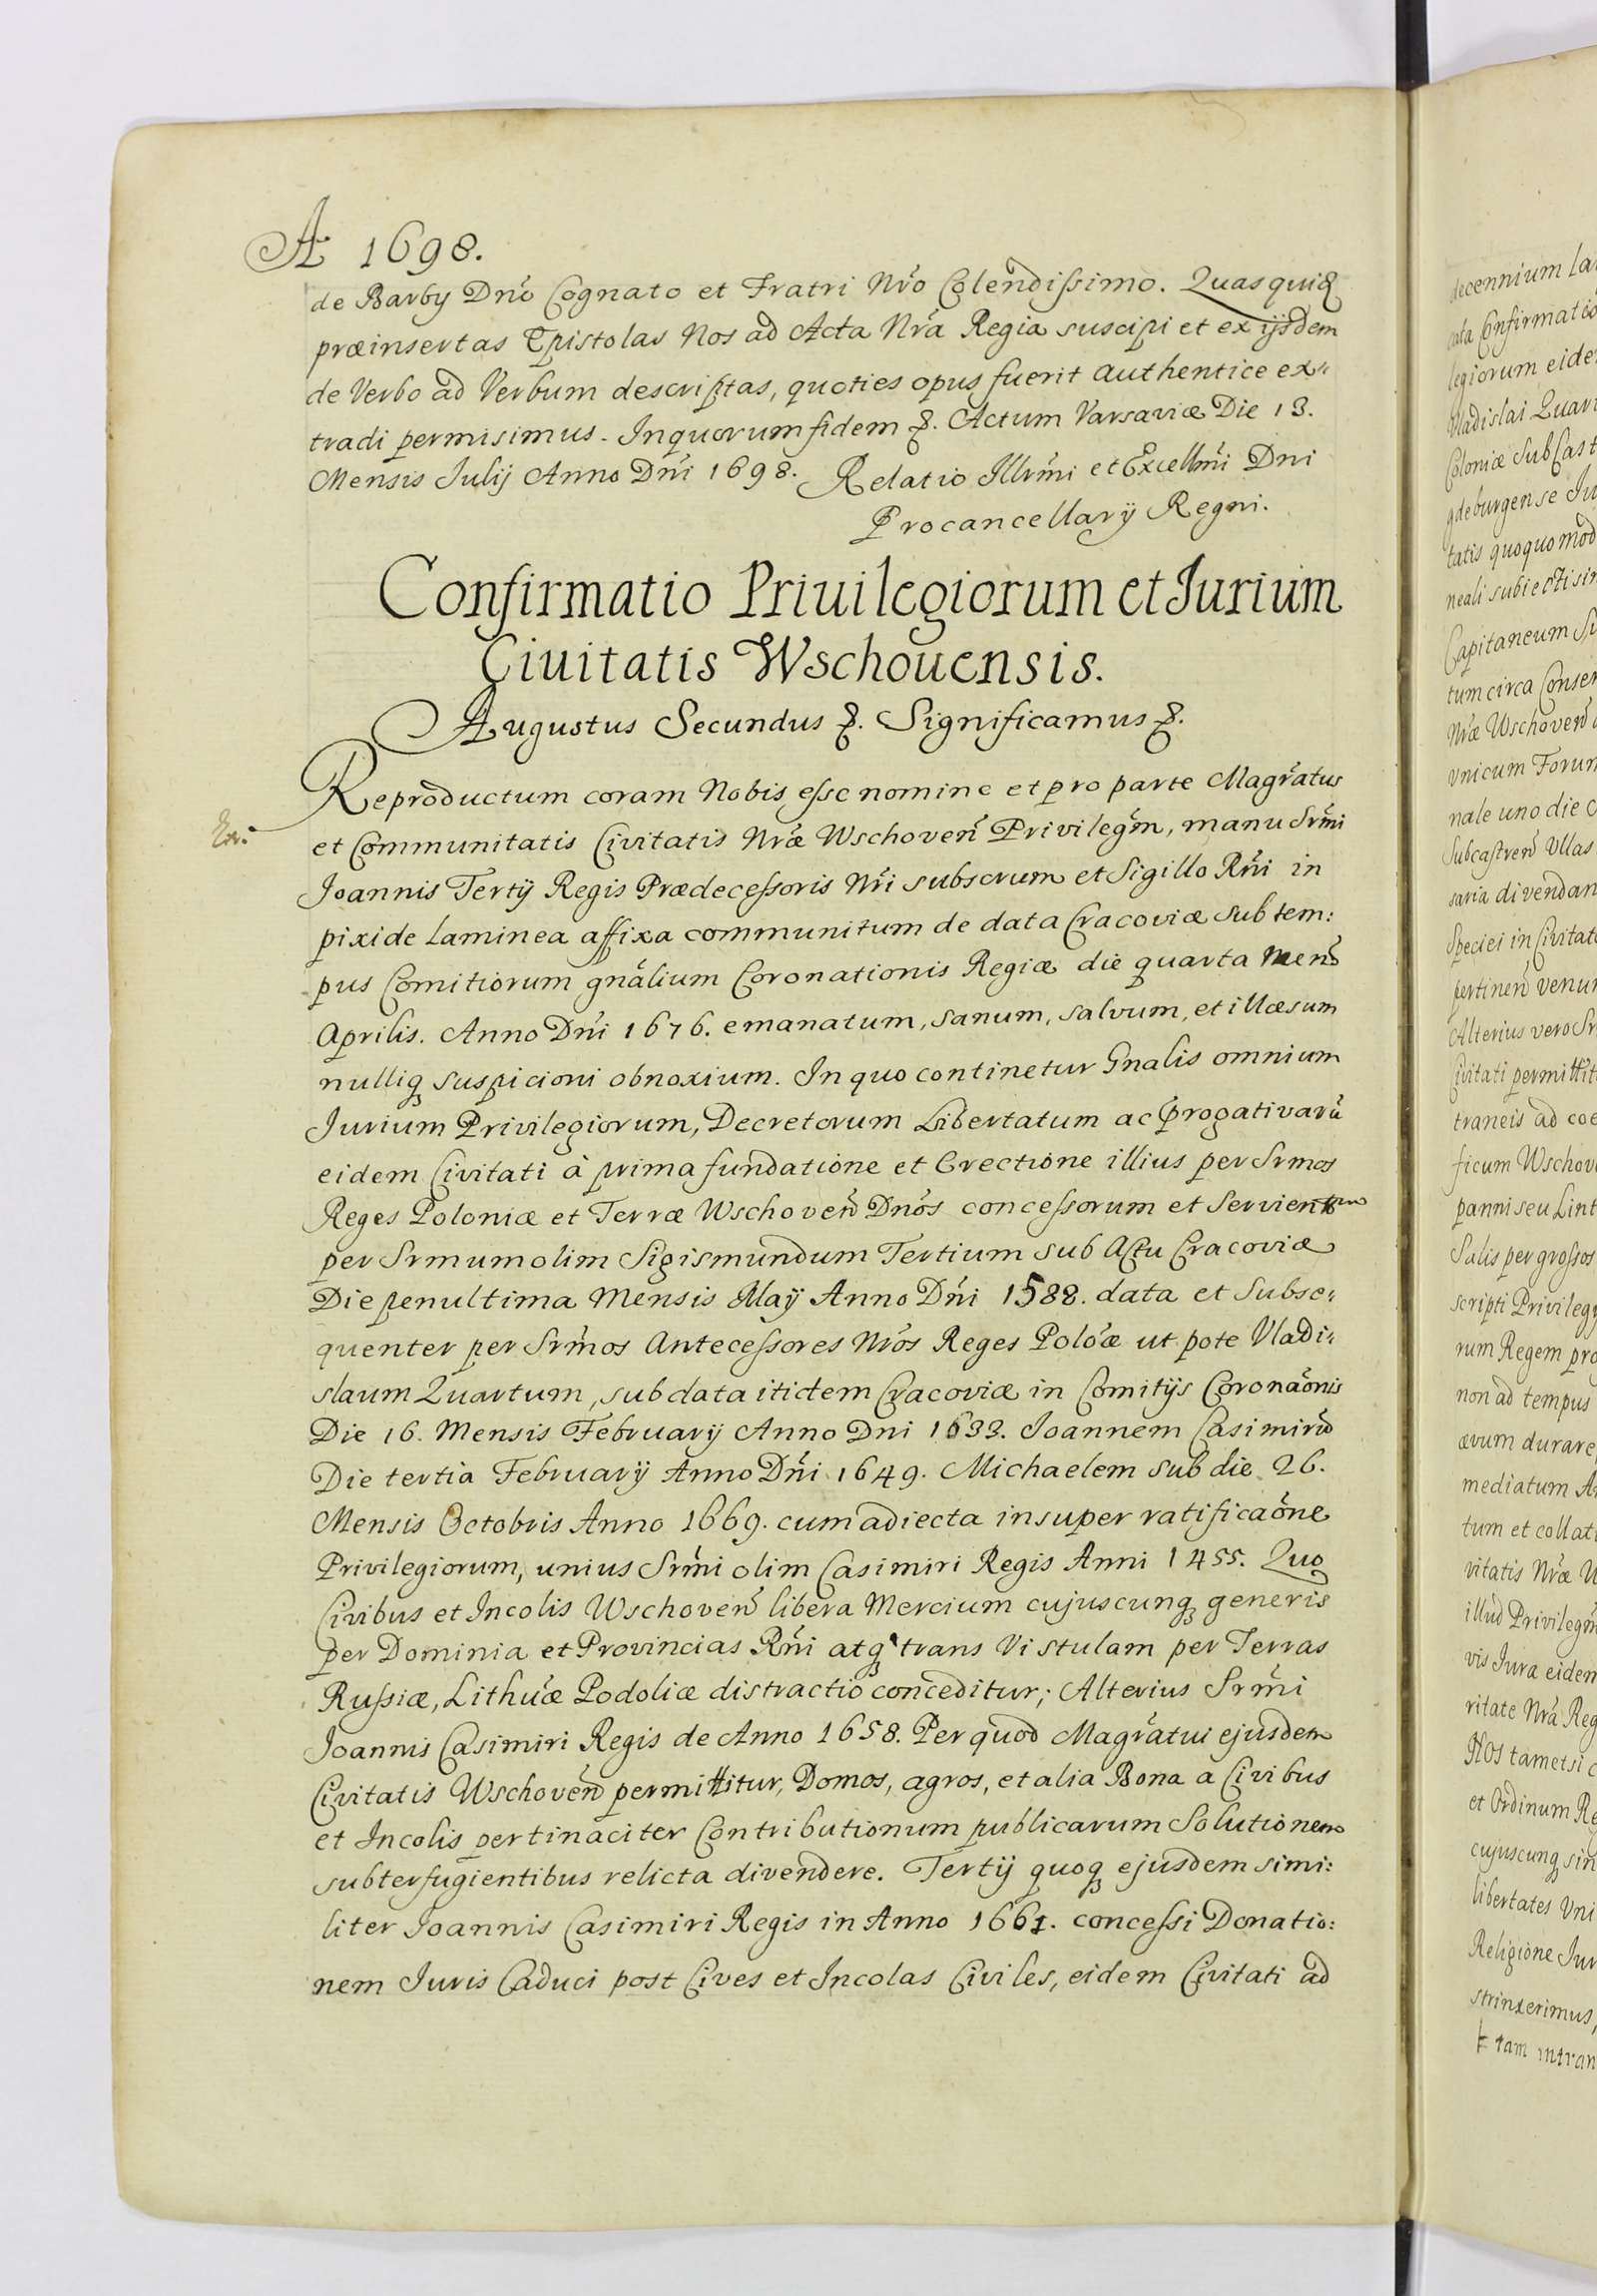 A 1698.
de Barby Dno Cognato et Fratri Nro Colendissimo. Quasquidē
præinsertas Epistolas Nos ad Acta Nra Regia suscipi et ex ijsdem
de Verbo ad Verbum descriptas, quoties opus fuerit authentice ex-
tradi permisimus. In quorum fidem &. Actum Varsaviæ Die 13.
Mensis Julij Anno Dni 1698. Relatio Illrmi et Excellmi Dni
Procancellarij Regni.
Confirmatio Priuilegiorum et Jurium
Ciuitatis Wschouensis.
Augustus Secundus &. Significamus &.
Reproductum coram Nobis esse nomine et pro parte Magratus
Ex.
et Communitatis Civitatis Nræ Wschoven Privilegm, manu Srmi
Joannis Tertij Regis Prædecessoris Nri subscrum et Sigillo Rni in
pixide laminea affixa communitum de data Cracoviæ sub tem:
pus Comitiorum gnalium Coronationis Regiæ die quarta Mens
Aprilis. Anno Dni 1676. emanatum, sanum, salvum, et illæsum
nulliq suspicioni obnoxium. In quo continetur Gnalis omnium
Jurium Privilegiorum, Decretorum Libertatum ac progativarū
eidem Civitati à prima fundatione et Erectione illius per Srmos
Reges Poloniæ et Terræ Wschoven Dnos concessorum et Servientm
per Srmum olim Sigismundum Tertium sub Actu Cracoviæ
Die penultima Mensis Maÿ Anno Dni 1588. data et Subse-
quenter per Srmos Antecessores Nros Reges Poloæ ut pote Vladi-
slaum Quartum, sub data itidem Cracoviæ in Comitijs Coronaonis
Die 16. Mensis Februarij Anno Dni 1633. Joannem Casimirū
Die tertia Februarij Anno Dni 1649. Michaelem sub die 26.
Mensis Octobris Anno 1669. cum adiecta insuper ratificaone
Privilegiorum, unius Srmi olim Casimiri Regis Anni 1455. Quo
Civibus et Incolis Wschoven libera Mercium cujuscunq generis
per Dominia et Provincias Rni atq trans Vistulam per Terras
Russiæ, Lithuæ Podoliæ distractio conceditur; Alterius Srmi
Joannis Casimiri Regis de Anno 1658. Per quod Magratui ejusdem
Civitatis Wschoven permittitur, Domos, agros, et alia Bona a Civibus
et Incolis pertinaciter Contributionum publicarum Solutionem
subterfugientibus relicta divendere. Tertij quoq ejusdem simi:
liter Joannis Casimiri Regis in Anno 1661. concessi Donatio:
nem Juris Caduci post Cives et Incolas Civiles, eidem Civitati ad
decennium
Confirmatio
legiorum
Vladislai
Coloniæ Sub
gdeburgense
tatis quoquo
neali
Capitaneum
tum circa
Nræ Wschoven
unicum
nale uno die
Subcastren Ullas
saria
Speciei in
pertinen
Alterius vero
Civitati
traneis ad
ficum
panni seu
Salis per grossos
scripti
rum Regem
non ad tempus
ævum durare
mediatum
tum et
vitatis Nræ
illud
vis Jura
ritate Nra
Nos tametsi
et Ordinum
cujuscunq
libertates
Religione
strinxerimus,
tam